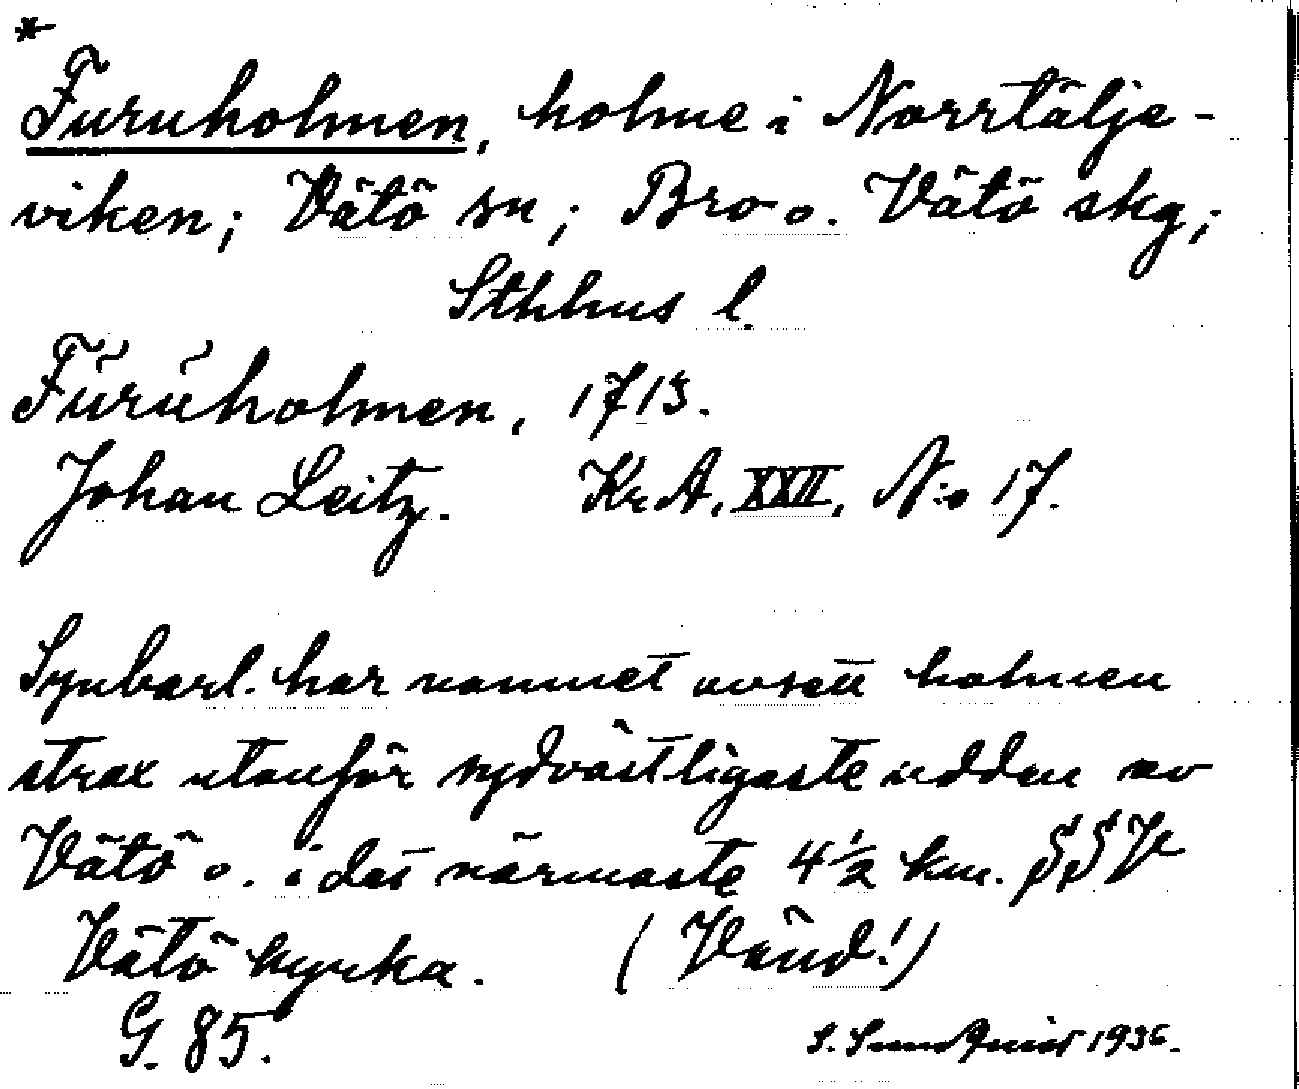 *
Furuholmen, holme i Norrtälje-
viken; Vätö sn; Bro o. Vätö skg;
Sthlms l.
Furuholmen, 1713.
Johan Leitz. Kr A, XXII, N:o 17.
Synbarl. har namnet avsett holmen
strax utanför sydvästligaste udden av
Vätö o. i det närmaste 4 1/2 km. SSV
Vätö kyrka. (Vänd!)
G. 85.
S. 1936.